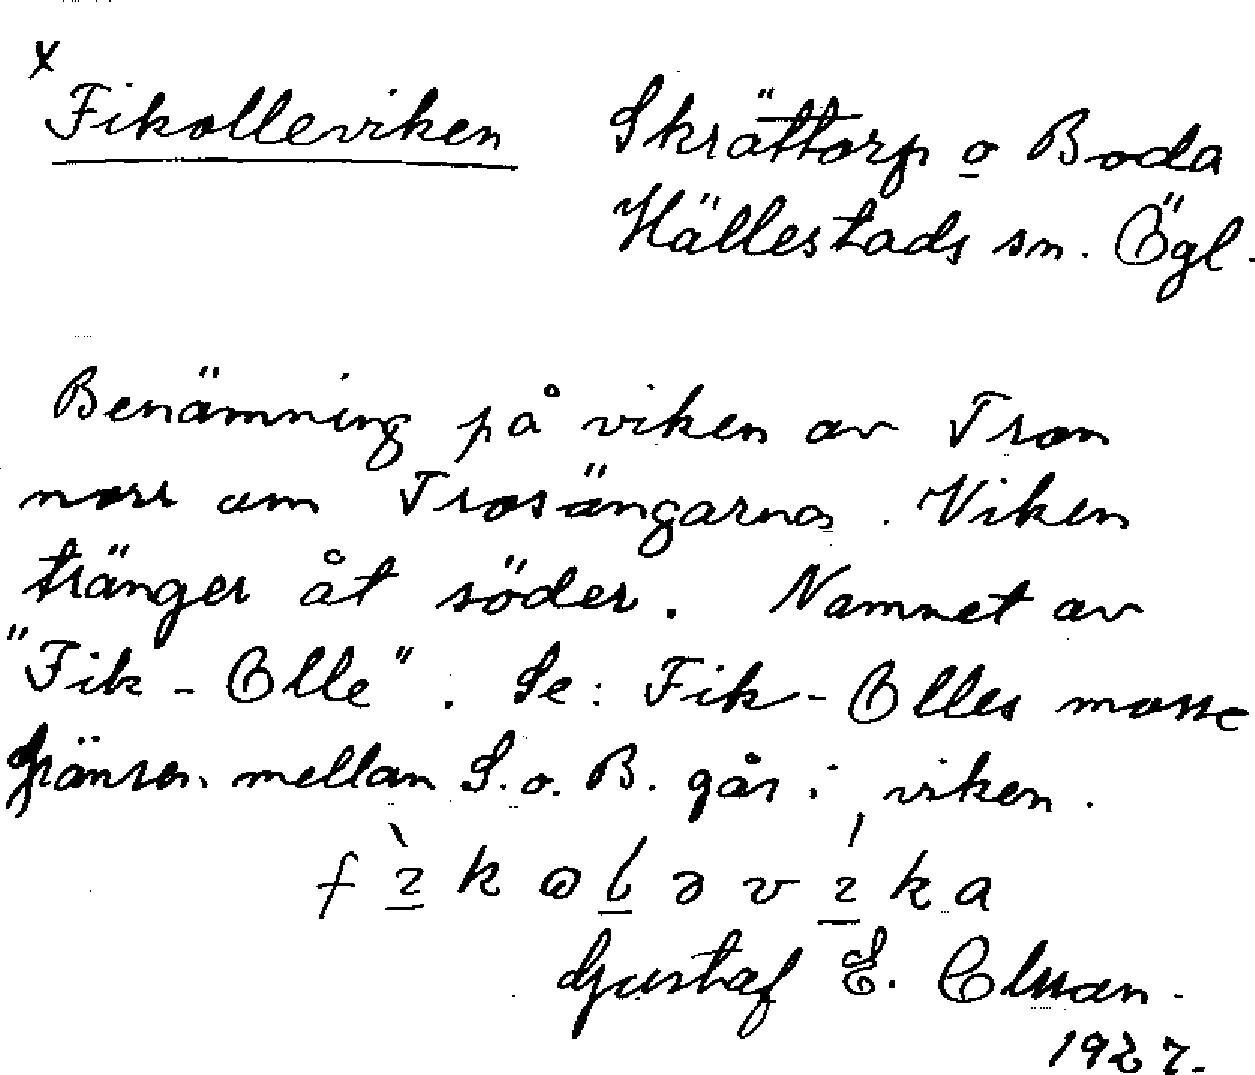 x
Fikolleviken Skrättorp o Boda
Hällestads sn. Ögl.
Benämning på viken av Tron
norr om Trosängarna. Viken
tränger åt söder. Namnet av
"Fik-Olle". Se: Fik-Olles mosse
Gränsen mellan S. o. B. går i viken.
Gustaf E.
1927.